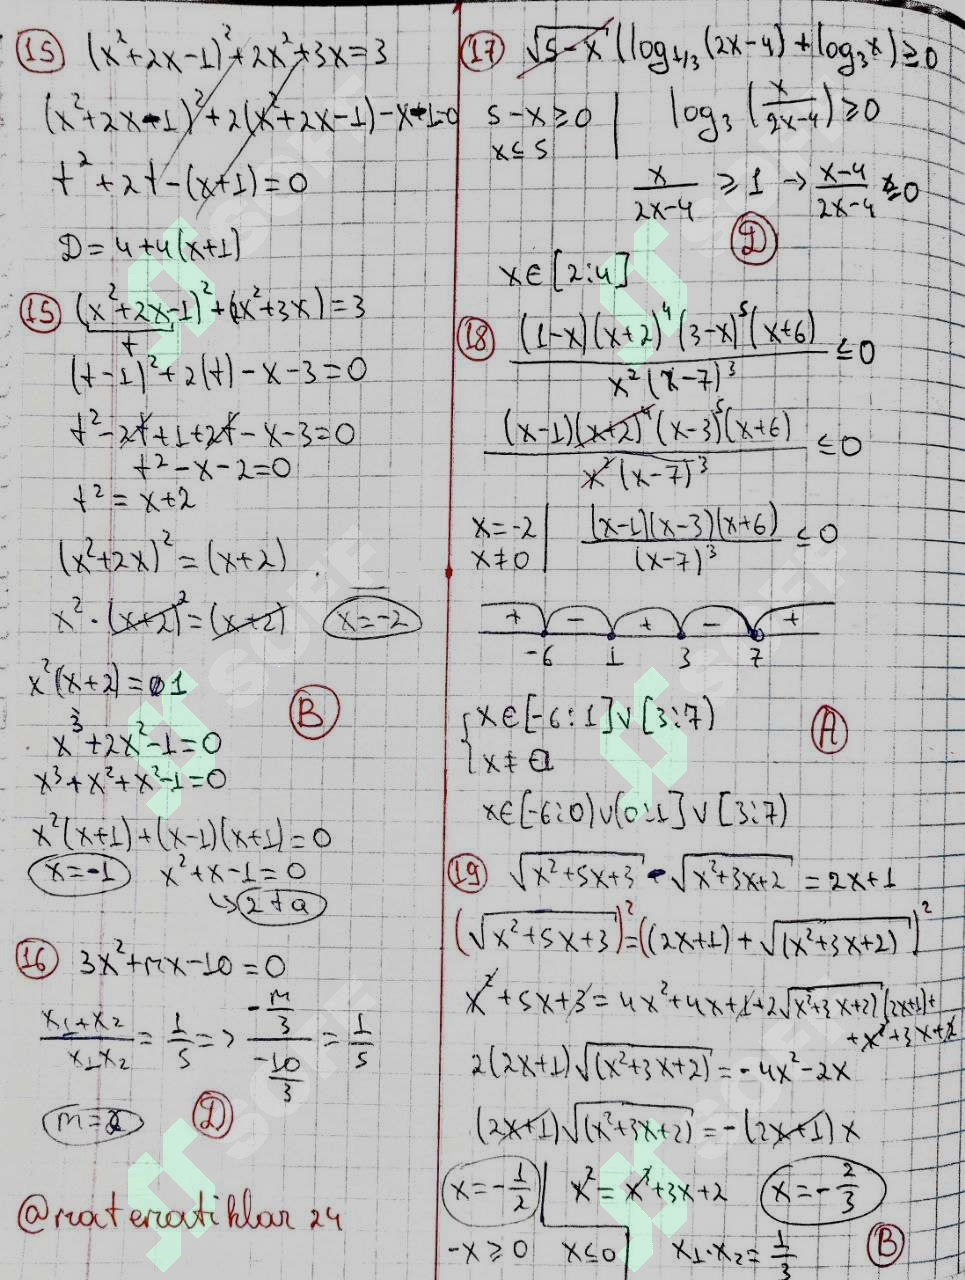 15 (x²+2x-1)²+2x²+3x=3
(x²+2x-1)²+2(x²+2x-1)-x-1=0
t²+2t-(x+1)=0
D=4+4(x+1)
15 (x²+2x-1)²+(2x²+3x)=3
t
(t-1)²+2(t)-x-3=0
t²-2t+1+2t-x-3=0
t²-x-2=0
t²=x+2
(x²+2x)²=(x+2)
x²·(x+2)²=(x+2) x=-2
x²(x+2)=1
B
x³+2x²-1=0
x³+x²+x²-1=0
x²(x+1)+(x-1)(x+1)=0
x=-1 x²+x-1=0
↳ 2ta
16 3x²+mx-10=0
(x₁+x₂)/(x₁x₂)=1/5=>(-m/3)/(-10/3)=1/5
m=2 D
@matematiklar24
17 √5-x (log₁/₃(2x-4)+log₃x)≥0
5-x≥0 | log₃(x/(2x-4))≥0
x≤5
x/(2x-4)≥1→(x-4)/(2x-4)≤0
D
x∈[2:4]
18 ((1-x)(x+2)⁴(3-x)⁵(x+6))/(x²(x-7)³)≤0
((x-1)(x+2)⁴(x-3)⁵(x+6))/(x²(x-7)³)≤0
x=-2 | ((x-1)(x-3)(x+6))/(x-7)³≤0
x≠0
+ - + - +
-6 1 3 7
{x∈[-6:1]∨[3:7)
A
x≠0
x∈[-6:0)∨(0:1]∨[3:7)
19 √x²+5x+3 - √x²+3x+2 = 2x+1
(√x²+5x+3)²=((2x+1)+√(x²+3x+2))²
x²+5x+3=4x²+4x+1+2√x²+3x+2(2x+1)+
+x²+3x+2
2(2x+1)√(x²+3x+2)=-4x²-2x
(2x+1)√(x²+3x+2)=-(2x+1)x
x=-1/2 | x²=x²+3x+2 x=-2/3
-x≥0 x≤0 | x₁·x₂=1/3 B
SOFF
SOFF
SOFF
SOFF
SOFF
SOFF